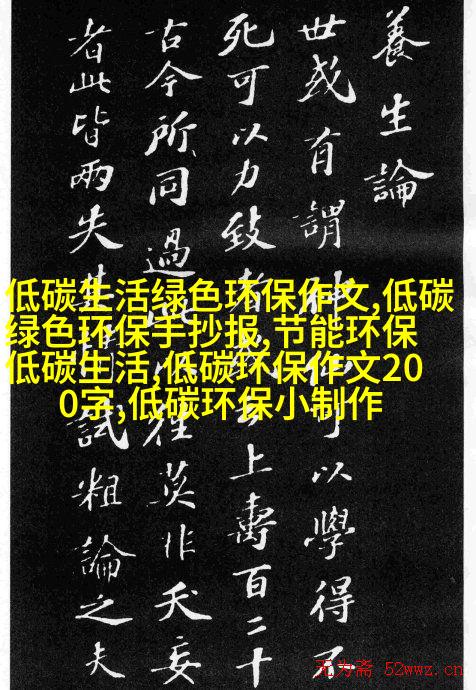 養生論
世或有謂神仙可以學得不
死可以力致者或云上壽百二十
古今所同過此以往莫非夭妄
者此皆兩失其情試粗論之夫
低碳生活绿色环保作文,低碳
绿色环保手抄报,节能环保
低碳生活,低碳环保作文20
0字,低碳环保小制作
无为斋 52wwz.cn